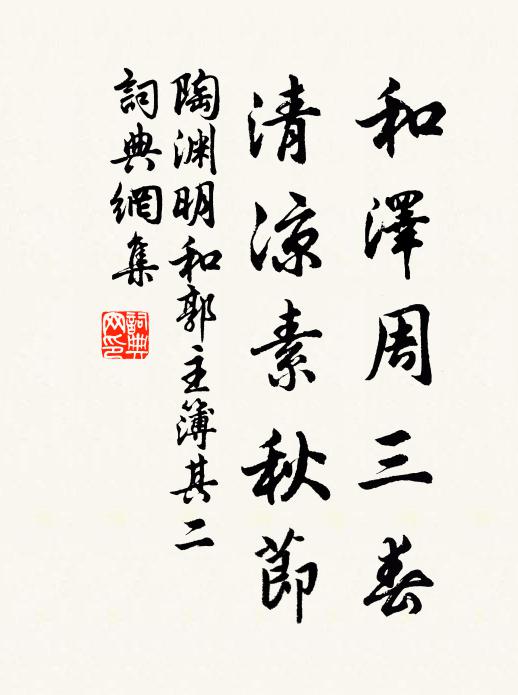 和澤周三春
清涼素秋節
陶淵明和郭主簿其二
詞典網集
詞典
网印